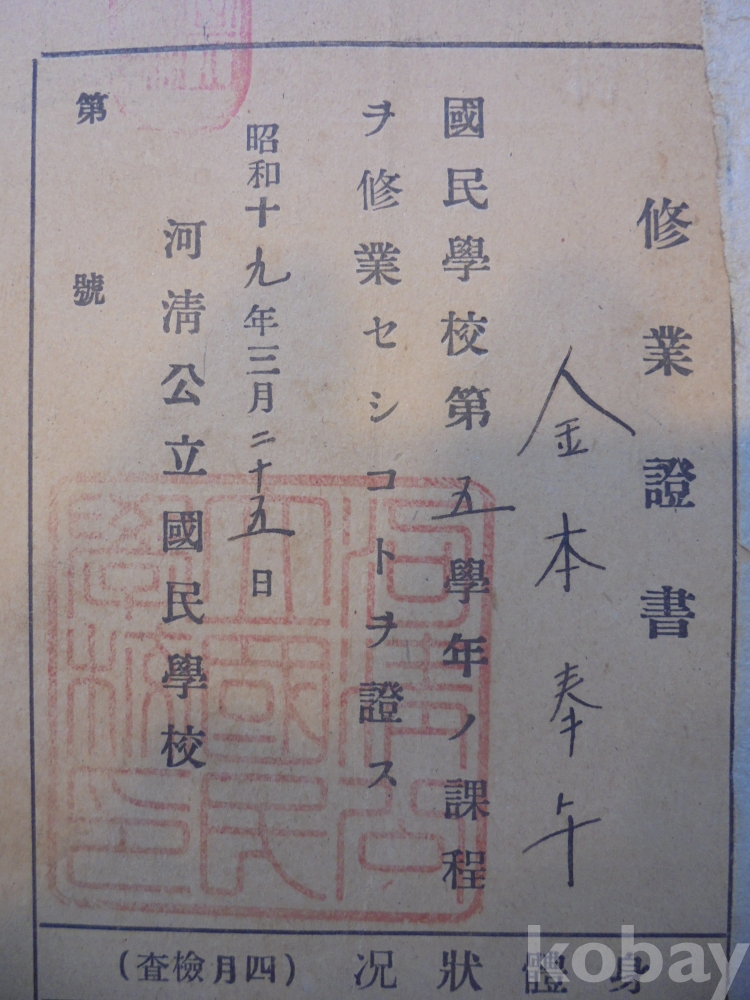 修業證書
金本奉午
國民學校第五學年ノ課程
ヲ修業セシコトヲ證ス
昭和十九年三月二十五日
河清公立國民學校
第 號
河清公
立國民
學校印
身體狀況 (四月檢查)
kobay